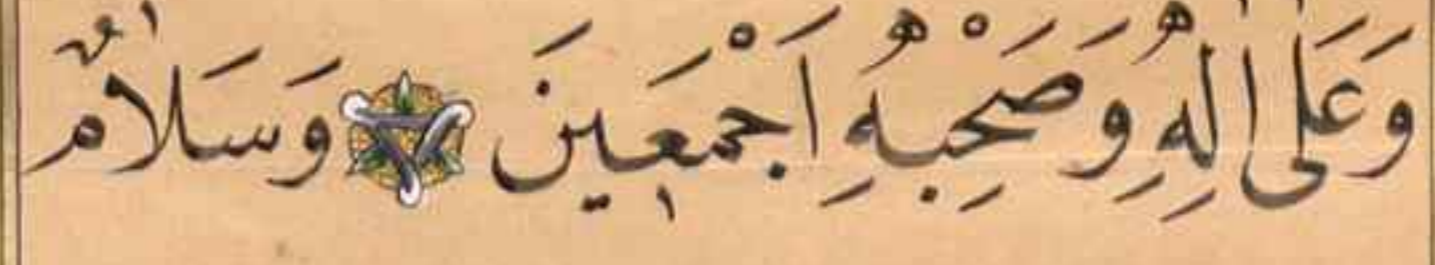 وَعَلٰى اٰلِهِ وَصَحْبِهِ اَجْمَعِينَ وَسَلَامٌ